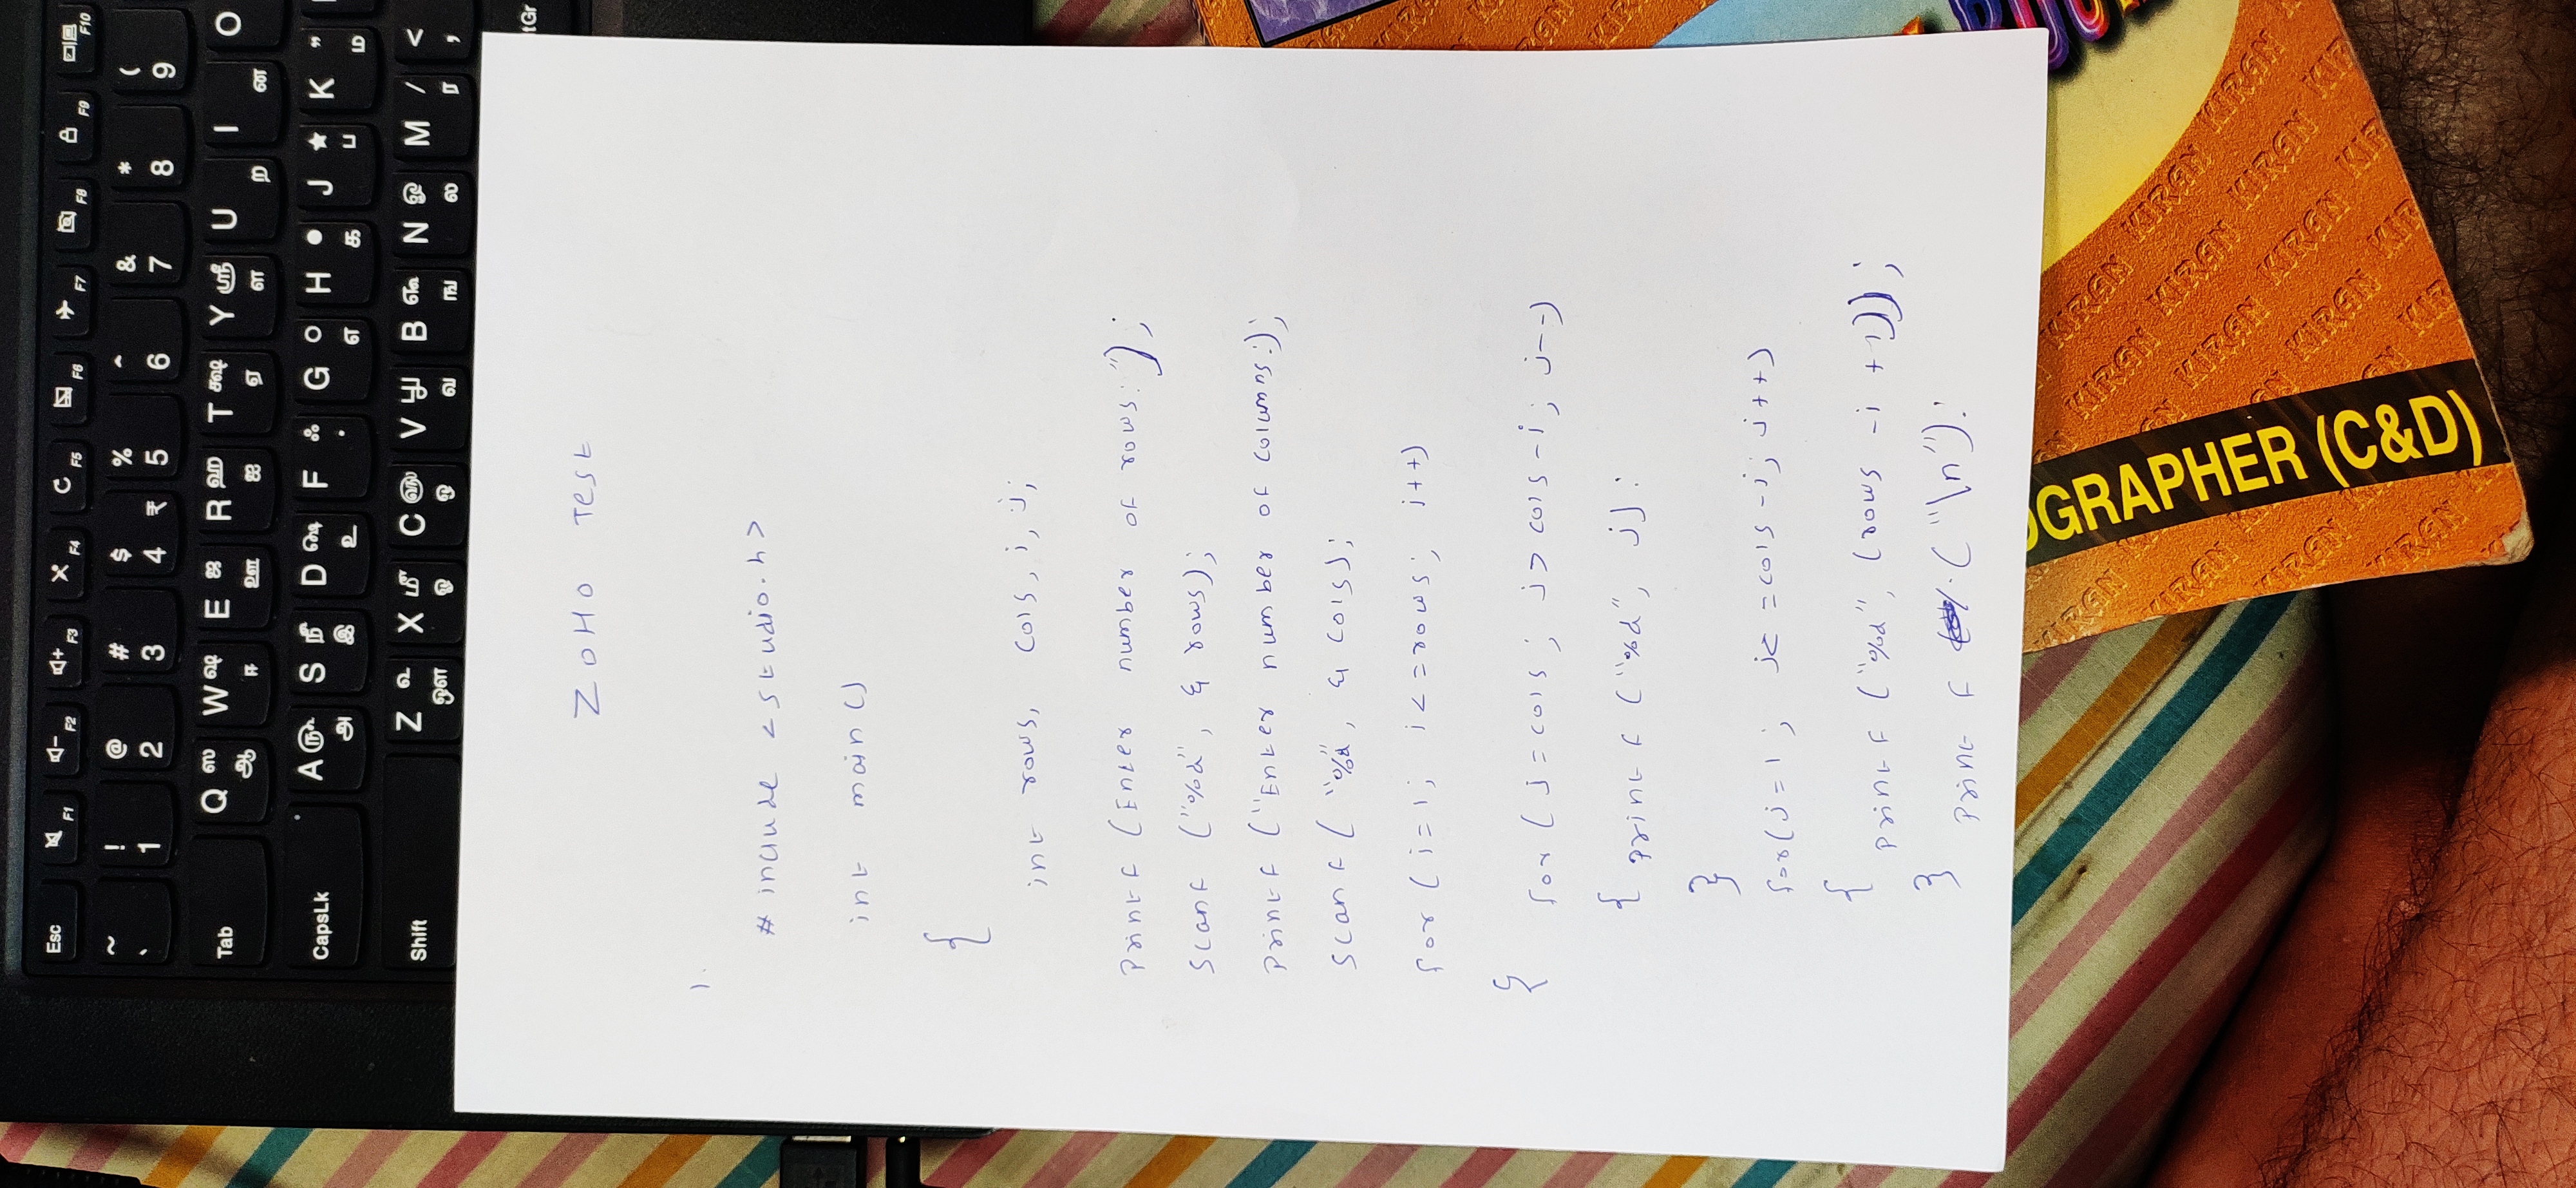 Esc F1 F2 F3 F4 F5 F6 F7 F8 F9 F10
~ ! @ # $ % ^ & * (
` 1 2 3 4 ₹ 5 6 7 8 9
Tab Q ஸ ஆ W ஷ ஈ E ஜ ஊ R ஹ ஐ T க்ஷ ஏ Y ஸ்ரீ ள U ற I ன O
CapsLk A அ S இ D உ F G எ H க J ப K ” ம
Shift Z ஔ X ஓ C ஒ V வ B ங N ல M / ர < ,
tGr
ZOHO TEST
1.
# include <studio.h>
int main()
{
int rows, cols, i, j;
Printf (Enter number of rows:");
Scanf ("%d", & rows);
Printf ("Enter number of columns:);
Scanf ( "%d", & cols);
for ( i=1; i<=rows; i++)
{ for ( j = cols ; j> cols -i; j--)
{ printf ("%d", j) :
}
for(j=1 ; j< =cols -i; j++)
{
printf ("%d", (rows -i +1));
} printf ("\n"):
OGRAPHER (C&D)
KIRAN KIRAN KIRAN KIRAN